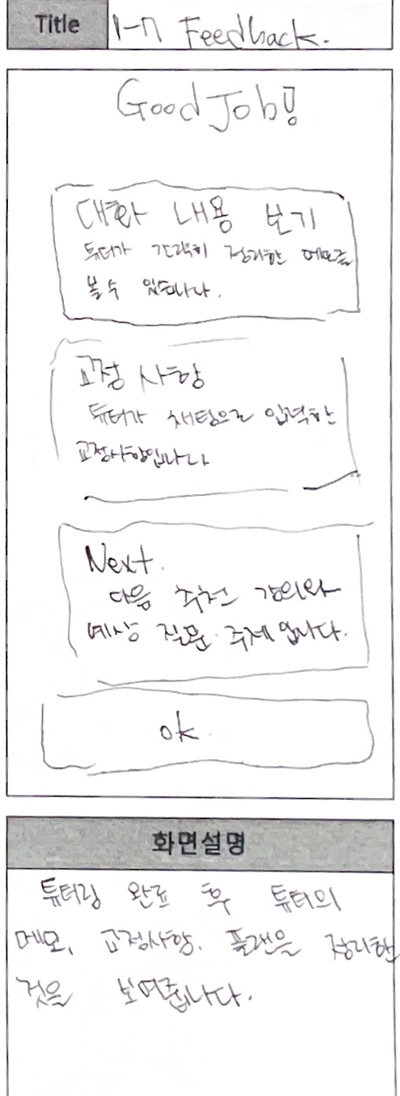 Title
1-7 Feedback.
Good Job!
대화 내용 보기
튜터가 간략히 정리한 메모를
볼 수 있습니다.
교정 사항
튜터가 채팅으로 입력한
교정사항입니다
Next.
다음 추천 강의와
예상 질문. 주제입니다.
ok.
화면설명
튜터링 완료 후 튜터의
메모, 교정사항. 플랜을 정리한
것을 보여줍니다.